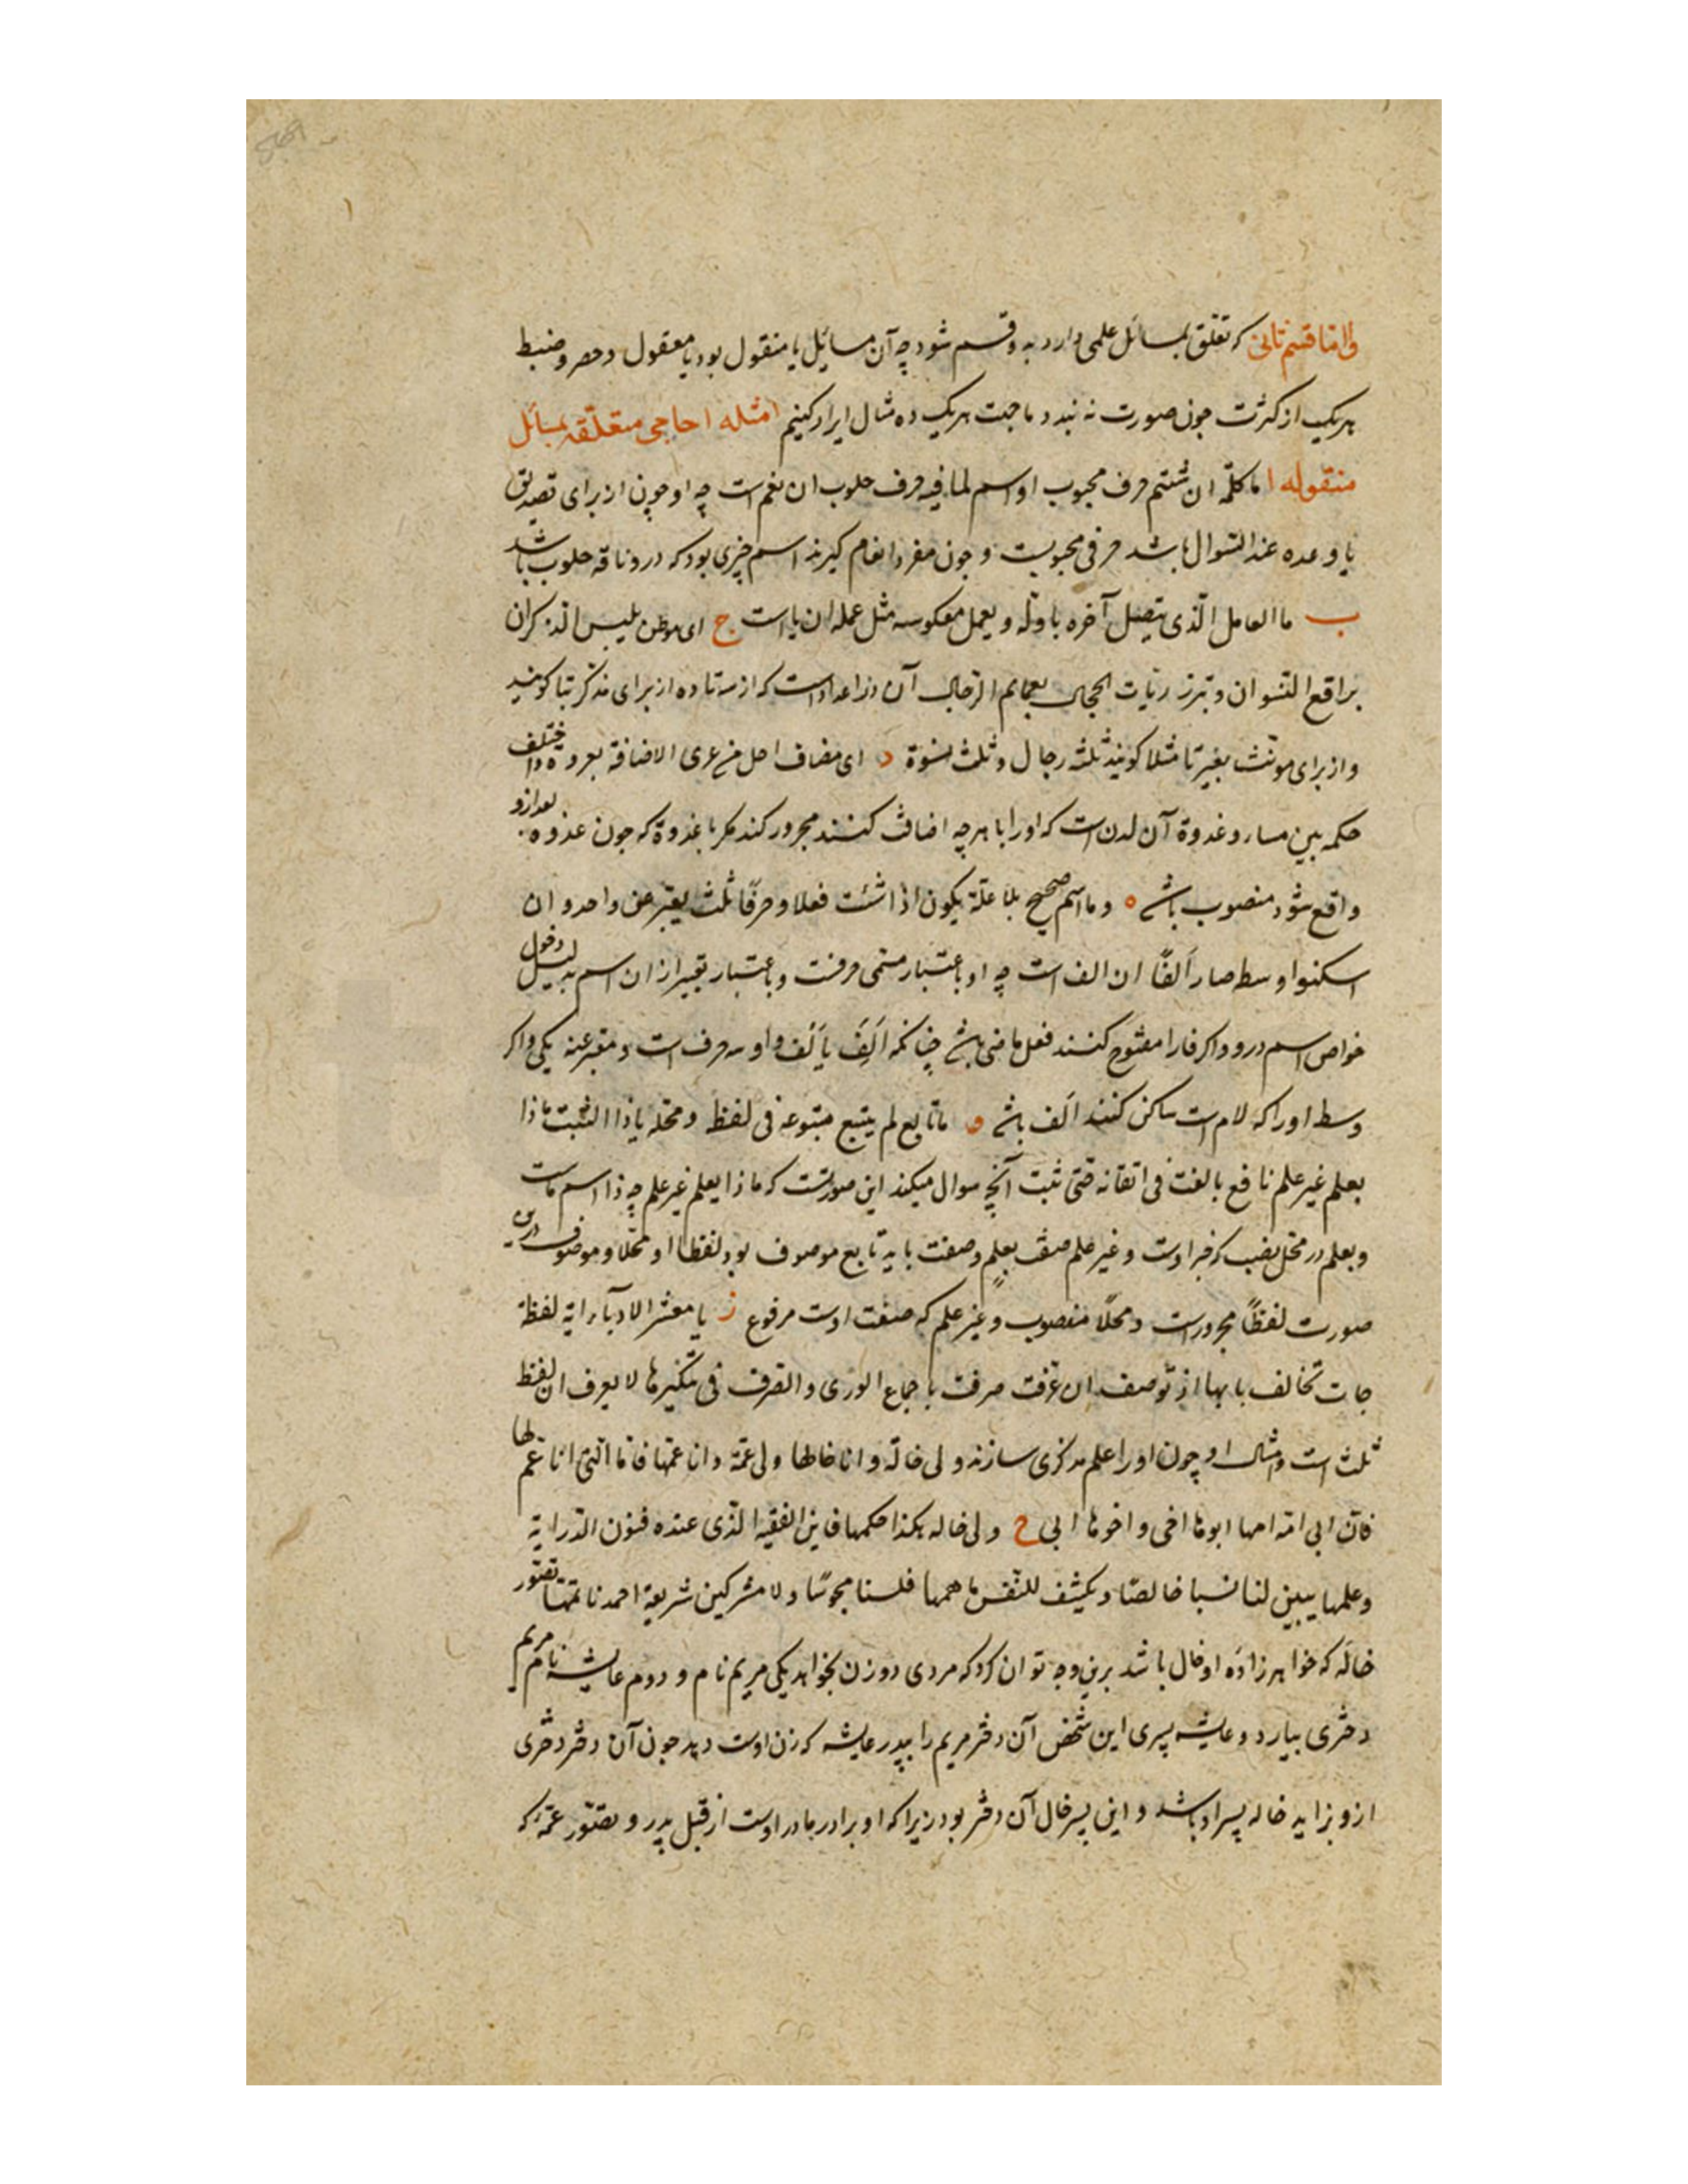 و اما قسم ثانی که تعلق بمسائل علمی دارد به دو قسم شود چه آن مسائل یا منقول بود یا معقول و حصر و ضبط
هر یک از کثرت چون صورت نه بندد ما جهت هر یک ده مثال ایراد کنیم امثله احاجی متعلقه بمسائل
منقوله ا ما کلمة ان شئتم حرف محبوب او اسم لما فیه حرف حلوب ان نعم است چه او چون از برای تصدیق
یا وعده عند السوال باشد حرفی محبوبست و چون مفرد انعام گیرند اسم چیزی بود که درو ناقه حلوب باشد
ب ما العامل الذی یتصل آخره باوله و یعمل معکوسه مثل عمله ان یا است ج ای موطن یلبس الذکران
براقع النسوان و تبرز ربات الحجال بعمایم الرجال آن در اعداد است که از سه تا ده از برای مذکر بتا گویند
و از برای مونث بغیر تا مثلا گویند ثلثة رجال و ثلث نسوة د ای مضاف اخل من عری الاضافة بعروة و اختلف
حکمه بین مساء و غدوة آن لدن است که او را با هر چه اضافت کنند مجرور کند مگر با غدوة که چون غدوه بعد ازو
واقع شود منصوب باشد ه و ما اسم صحیح بلا علة یکون اذا شئت فعلا و حرفا ثلث یعبر عن واحد و ان
اسکنوا وسط صار الفا ان الف است چه او باعتبار مسمی حرفست و باعتبار تعبیر از ان اسم بدلیل دخول
خواص اسم درو و اگر فا را مفتوح کنند فعل ماضی باشد چنانکه اَلِفَ یَألَف و او سه حرف است و معبر عنه یکی و اگر
وسط او را که لام است ساکن کنند اَلْف باشد و ما تابع لم یتبع متبوعه فی لفظ و محله یا ذا الثبت ماذا
بعلم غیر علم نافع بالغت فی اتقانه حتی ثبت آنچه سوال میکند این صورتست که ماذا بعلم غیر علم چه ذا اسم ماست
و بعلم در محل نصب که خبر اوست و غیر علم صفت بعلم و صفت باید تابع موصوف بود لفظا او محلا و موصوف درین
صورت لفظاً مجرور است و محلاً منصوب و غیر علم که صفت اوست مرفوع ز یا معشر الادباء ایة لفظة
جات تخالف بابها اذ توصف ان عرفت صرفت باجماع الوری و الصرف فی تنکیرها لا یعرف ان لفظ
ثلث است و امثال او چون او را علم مذکری سازند و لی خالة و انا خالها و لی عمة و انا عمها فاما التی انا عم لها
فان ابی امه امها ابوها اخی و اخوها ابی ح و لی خاله هکذا حکمها فاین الفقیه الذی عنده فنون الدرایة
و علمها یبین لنا نسبا خالصا و یکشف للنفس ما همها فلسنا مجوسا و لا مشرکین شریعة احمد ناتمها تصور
خاله که خواهرزاده او خال باشد برین وجه توان کرد که مردی دو زن بخواهد یکی مریم نام و دوم عایشه نام مریم
دختری بیارد و عایشه پسری این شخص آن دختر مریم را بپدر عایشه که زن اوست دهد چون آن دختر دختری
ازو بزاید خاله پسر او باشد و این پسر خال آن دختر بود زیرا که او برادر مادر اوست از قبل پدر و تصور عمه که